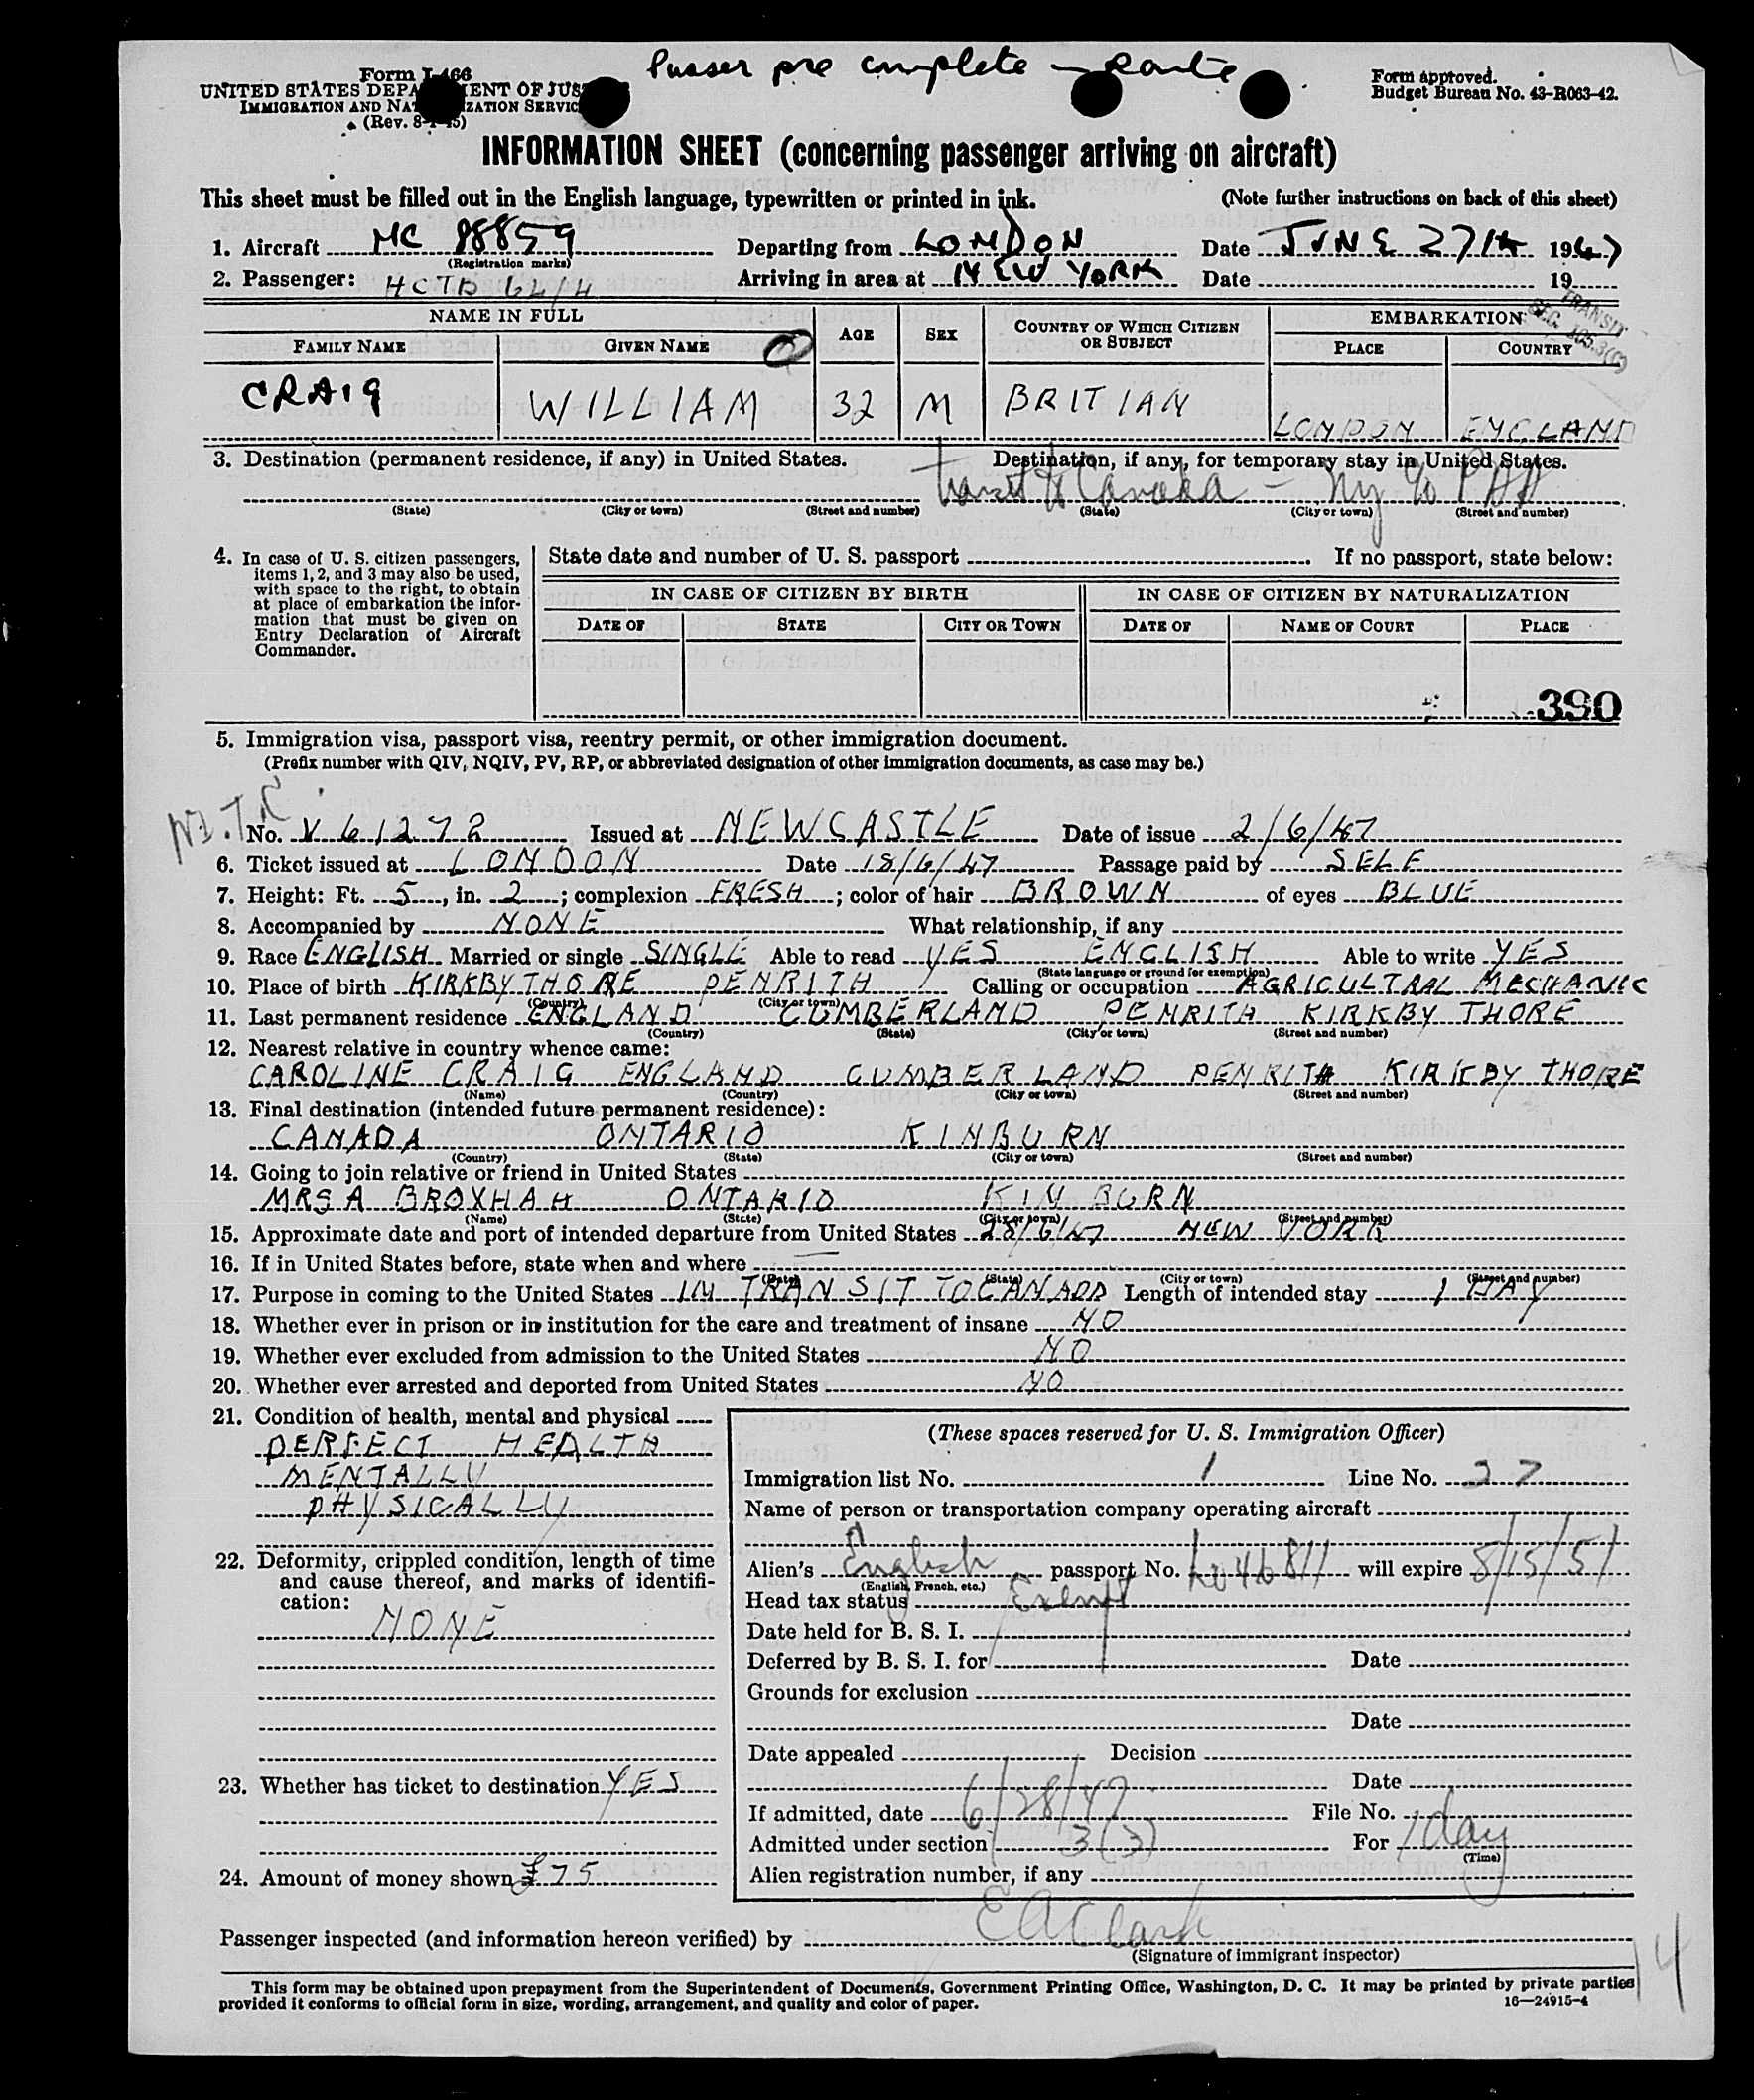 Purser pre complete — route
Form I-466
UNITED STATES DEPARTMENT OF JUSTICE
IMMIGRATION AND NATURALIZATION SERVICE
(Rev. 8-1-45)
Form approved.
Budget Bureau No. 43-R063-42.
INFORMATION SHEET (concerning passenger arriving on aircraft)
This sheet must be filled out in the English language, typewritten or printed in ink. (Note further instructions on back of this sheet)
1. Aircraft NC 88859 Departing from LONDON Date JUNE 27th 1947
(Registration marks)
2. Passenger: Arriving in area at NEW YORK Date 19
NAME IN FULL AGE SEX COUNTRY OF WHICH CITIZEN OR SUBJECT EMBARKATION
TRANSIT SEC.
FAMILY NAME GIVEN NAME PLACE COUNTRY
CRAIG WILLIAM 32 M BRITIAN LONDON ENGLAND
3. Destination (permanent residence, if any) in United States. Destination, if any, for temporary stay in United States.
Transit to Canada — Ny c/o PAA
(State) (City or town) (Street and number) (State) (City or town) (Street and number)
4. In case of U. S. citizen passengers, items 1, 2, and 3 may also be used, with space to the right, to obtain at place of embarkation the information that must be given on Entry Declaration of Aircraft Commander.
State date and number of U. S. passport If no passport, state below:
IN CASE OF CITIZEN BY BIRTH IN CASE OF CITIZEN BY NATURALIZATION
DATE OF STATE CITY OR TOWN DATE OF NAME OF COURT PLACE
390
5. Immigration visa, passport visa, reentry permit, or other immigration document.
(Prefix number with QIV, NQIV, PV, RP, or abbreviated designation of other immigration documents, as case may be.)
No. V 61272 Issued at NEWCASTLE Date of issue 2/6/47
6. Ticket issued at LONDON Date 18/6/47 Passage paid by SELF
7. Height: Ft. 5, in. 2; complexion FRESH; color of hair BROWN of eyes BLUE
8. Accompanied by NONE What relationship, if any
9. Race ENGLISH Married or single SINGLE Able to read YES ENGLISH Able to write YES
(State language or ground for exemption)
10. Place of birth KIRKBY THORE PENRITH Calling or occupation AGRICULTRAL MECHANIC
(Country) (City or town)
11. Last permanent residence ENGLAND CUMBERLAND PENRITH KIRKBY THORE
(Country) (State) (City or town) (Street and number)
12. Nearest relative in country whence came:
CAROLINE CRAIG ENGLAND CUMBERLAND PENRITH KIRKBY THORE
(Name) (Country) (City or town) (Street and number)
13. Final destination (intended future permanent residence):
CANADA ONTARIO KINBURN
(Country) (State) (City or town) (Street and number)
14. Going to join relative or friend in United States
MRS A BROXHAH ONTARIO KINBURN
(Name) (State) (City or town) (Street and number)
15. Approximate date and port of intended departure from United States 28/6/47 NEW YORK
16. If in United States before, state when and where
(Date) (State) (City or town) (Street and number)
17. Purpose in coming to the United States IN TRANSIT TO CANADA Length of intended stay 1 DAY
18. Whether ever in prison or in institution for the care and treatment of insane NO
19. Whether ever excluded from admission to the United States NO
20. Whether ever arrested and deported from United States NO
21. Condition of health, mental and physical
PERFECT HEALTH
MENTALLY
PHYSICALLY
22. Deformity, crippled condition, length of time and cause thereof, and marks of identification:
NONE
23. Whether has ticket to destination YES
24. Amount of money shown £75
(These spaces reserved for U. S. Immigration Officer)
Immigration list No. 1 Line No. 27
Name of person or transportation company operating aircraft
Alien's English passport No. will expire 8/15/51
(English, French, etc.)
Head tax status Exempt
Date held for B. S. I.
Deferred by B. S. I. for Date
Grounds for exclusion
Date
Date appealed Decision
Date
If admitted, date 6/28/47 File No.
Admitted under section 3(3) For 1 day
(Time)
Alien registration number, if any
Passenger inspected (and information hereon verified) by E A Clark
(Signature of immigrant inspector)
14
This form may be obtained upon prepayment from the Superintendent of Documents, Government Printing Office, Washington, D. C. It may be printed by private parties
provided it conforms to official form in size, wording, arrangement, and quality and color of paper. 16—24915-4